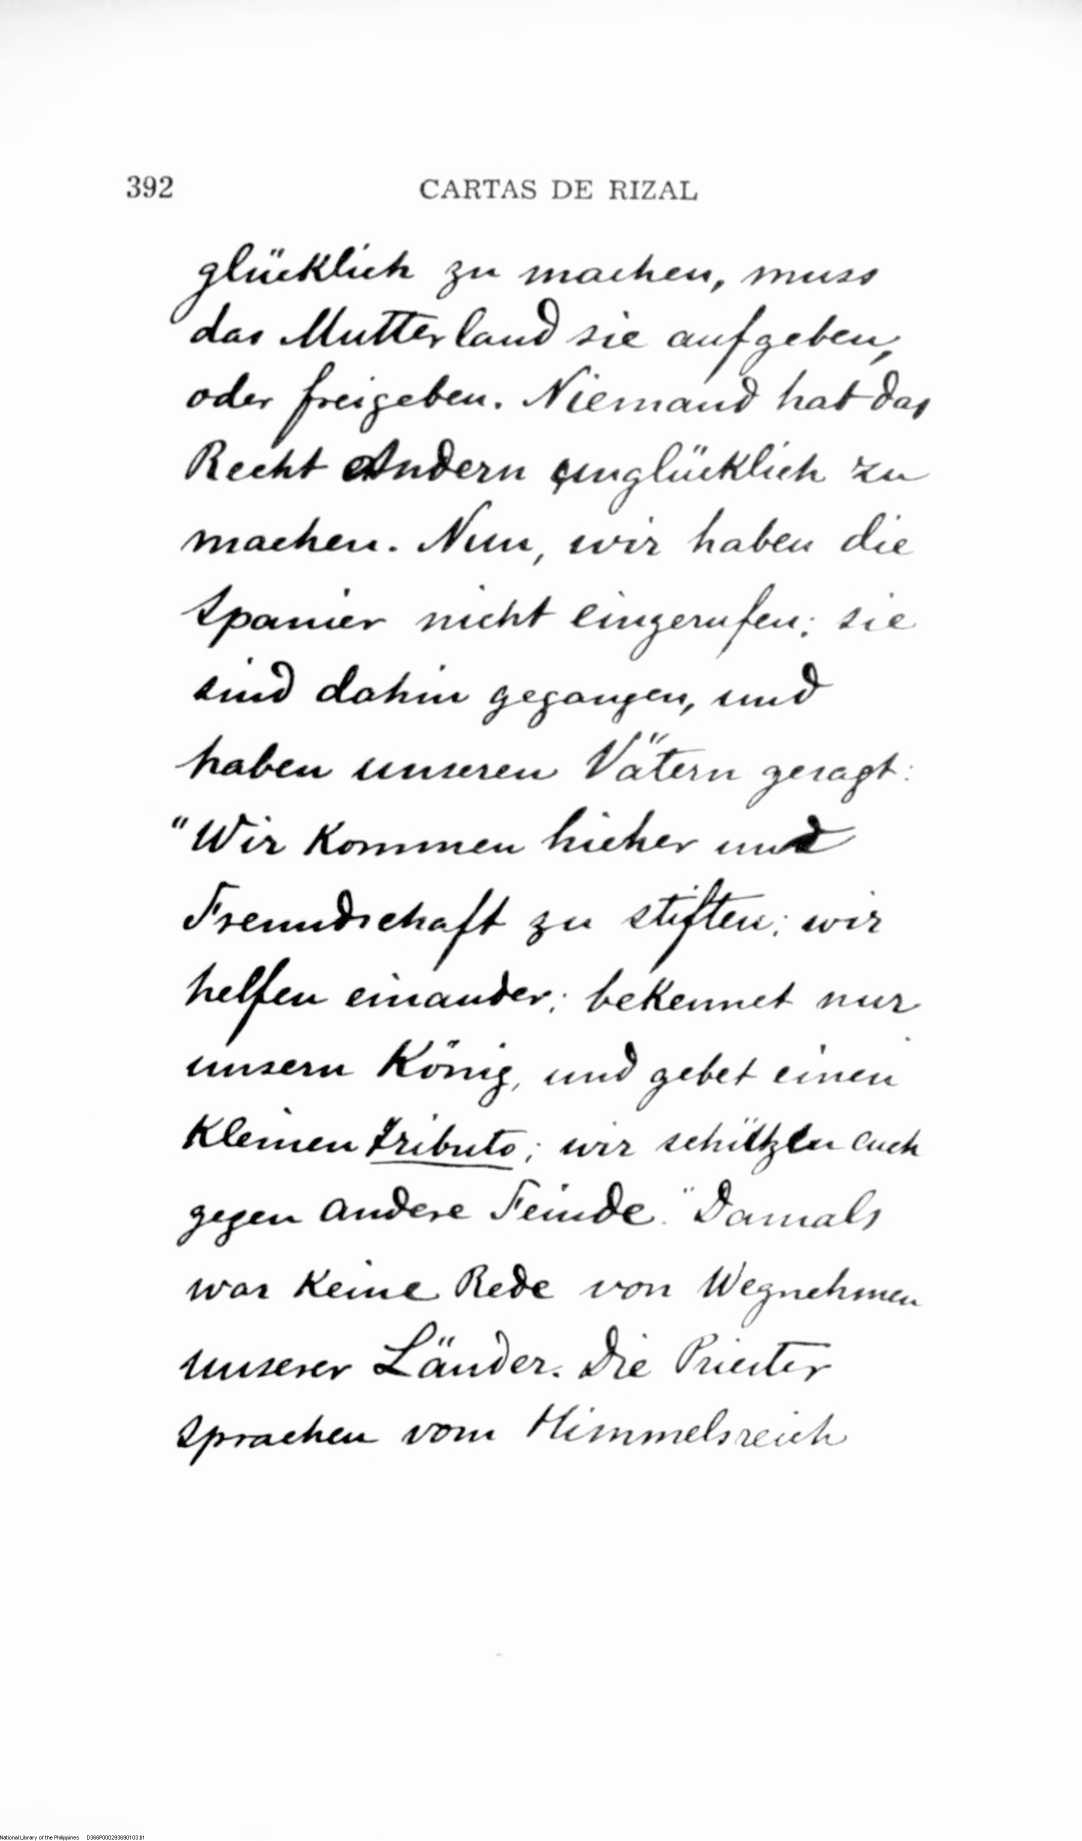 392 CARTAS DE RIZAL
glücklich zu machen, muss
das Mutterland sie aufgeben,
oder freigeben. Niemand hat das
Recht Andern unglücklich zu
machen. Nun, wir haben die
Spanier nicht eingerufen; sie
sind dahin gegangen, und
haben unseren Vätern gesagt:
"Wir kommen hieher und
Freundschaft zu stiften; wir
helfen einander; bekennet nur
unsern König, und gebet einen
kleinen tributo; wir schützen euch
gegen andere Feinde." Damals
war keine Rede von Wegnehmen
unserer Länder. Die Priester
sprachen vom Himmelsreich
National Library of the Philippines